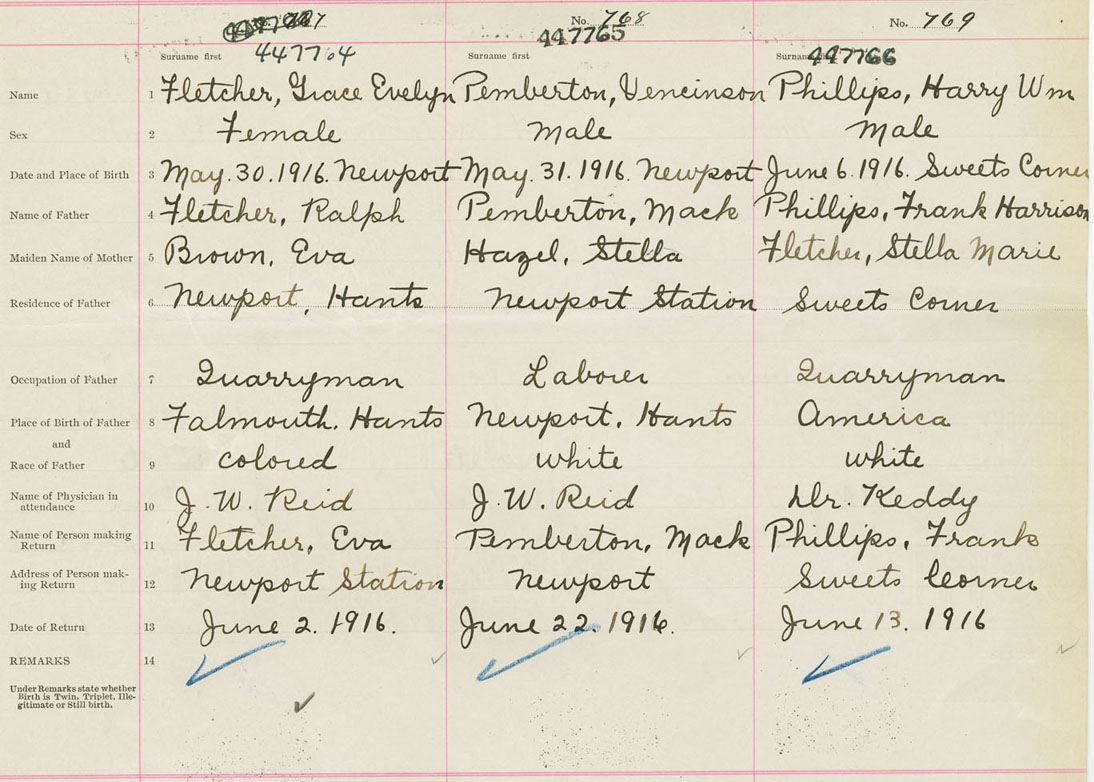 No. 768 No. 769
447764 447765 447766
Surname first Surname first
Name 1 Fletcher, Grace Evelyn Pemberton, Vencinson Phillips, Harry Wm
Sex 2 Female Male Male
Date and Place of Birth 3 May. 30. 1916. Newport May. 31. 1916. Newport June 6. 1916. Sweets Corner
Name of Father 4 Fletcher, Ralph Pemberton, Mack Phillips, Frank Harrison
Maiden Name of Mother 5 Brown, Eva Hazel, Stella Fletcher, Stella Marie
Residence of Father 6 Newport, Hants Newport Station Sweets Corner
Occupation of Father 7 Quarryman Laborer Quarryman
Place of Birth of Father 8 Falmouth. Hants Newport, Hants America
and
Race of Father 9 colored white white
Name of Physician in
attendance 10 J. W. Reid J. W. Reid Dr. Keddy
Name of Person making
Return 11 Fletcher, Eva Pemberton, Mack Phillips, Frank
Address of Person mak-
ing Return 12 Newport Station Newport Sweets Corner
Date of Return 13 June 2. 1916. June 22. 1916. June 13. 1916
REMARKS 14
Under Remarks state whether
Birth is Twin, Triplet, Ille-
gitimate or Still birth.